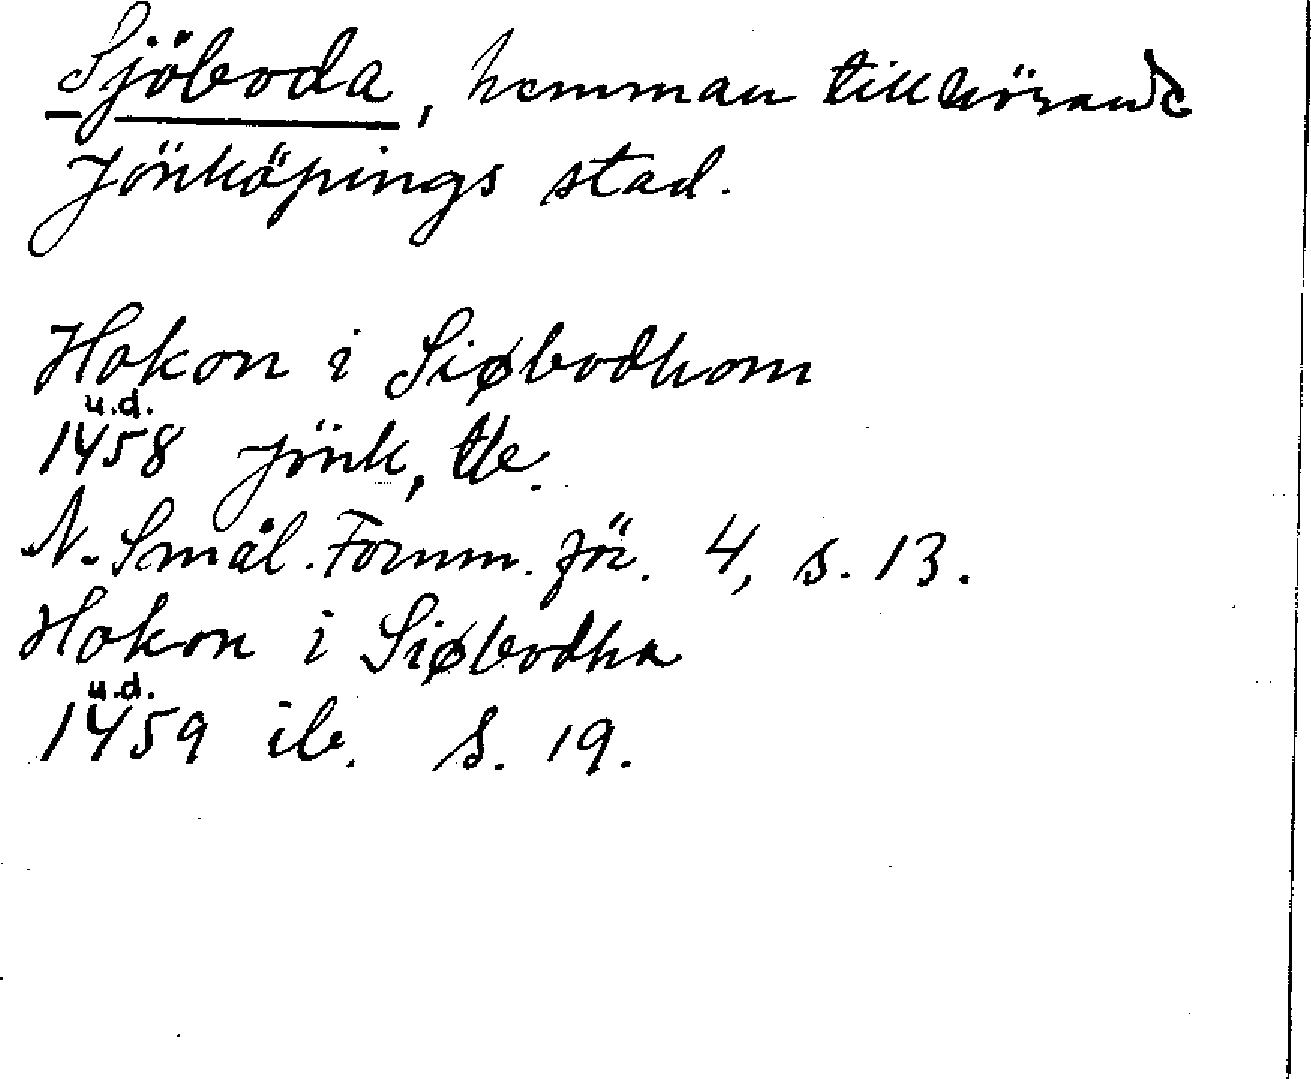 Sjöboda, hemman tillhörande
Jönköpings stad.
Hakon i Siøbodhom
u.d.
1458 Jönk, tb.
N. Smål. Fornm.för. 4, s. 13.
Hakon i Siøbodha
u.d.
1459 ib. s. 19.